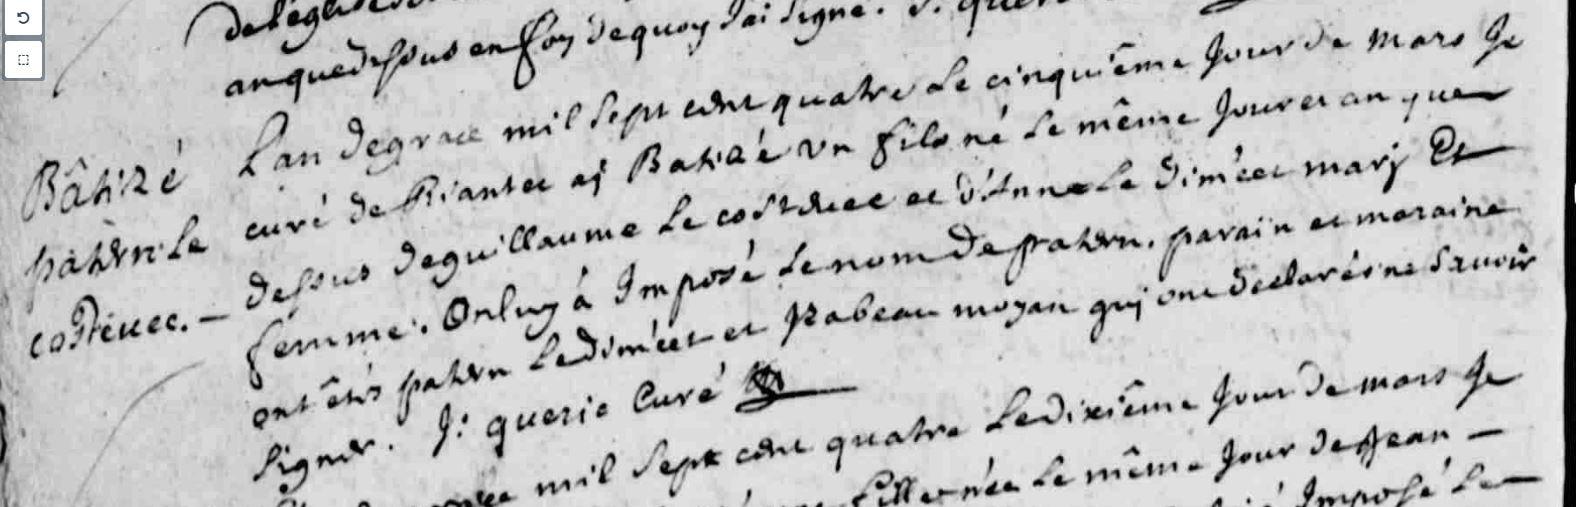 de l'église
an que dessus en foy de quoy J'ai signé. J. queri
L'an de grace mil sept cent quatre Le cinquième Jour de mars Je
Bâtizé
curé de Riantec aj Batizé un fils né Le même Jour et an que
patern Le
dessus de guillaume Le costevec et d'Anne Le Diméet marj Et
costevec. —
femme. On luy à Imposé Le nom de patern. parain et maraine
ont êtés patern Le diméet et Izabeau moyan quj ont declarés ne savoir
signer. J: querie Curé
mil sept cent quatre Le dixième Jour de mars Je
fille née Le même Jour de Jean —
Imposé Le —